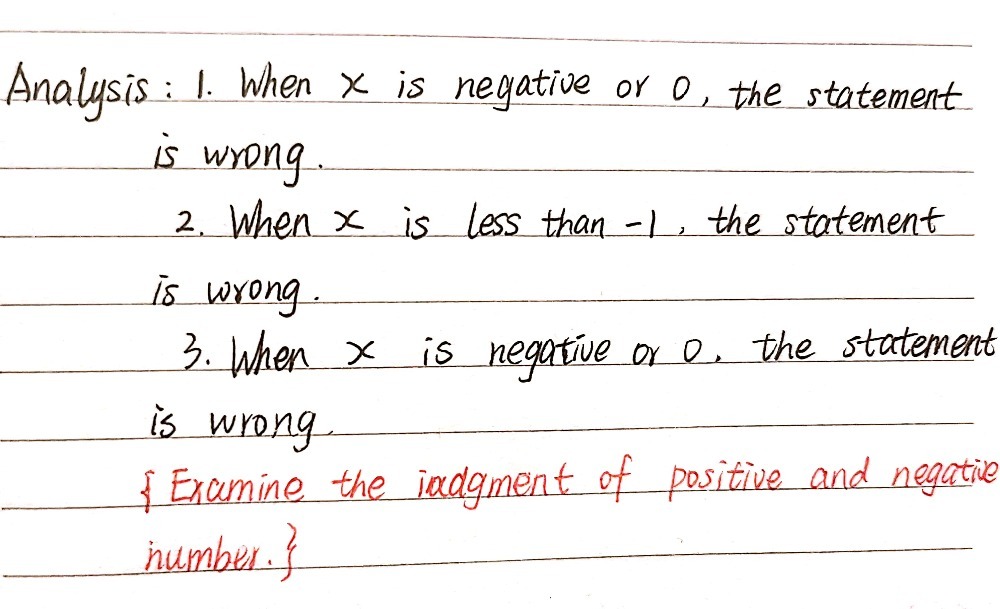 Analysis: 1. When x is negative or 0, the statement
is wrong.
2. When x is less than -1, the statement
is wrong.
3. When x is negative or 0, the statement
is wrong.
{Examine the iudgment of positive and negative
number.}